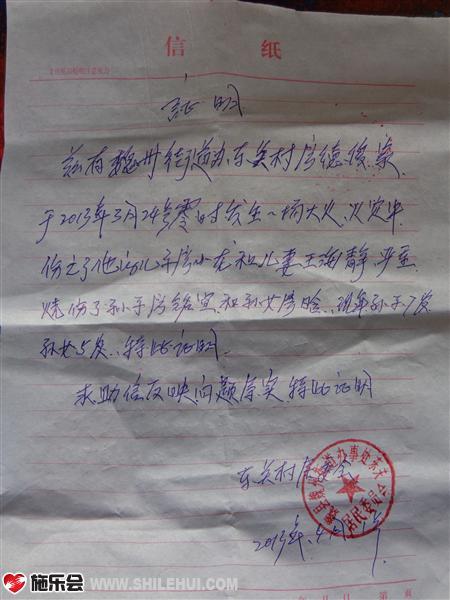 信 纸
证明
兹有魏州街道办东关村房德俊家
于2013年3月24号零时发生一场大火,火灾中
伤亡了他的儿子房小龙和儿妻王海静,严重
烧伤了孙子房铭宜和孙女房晗,现年孙子7岁
孙女5岁,特此证明.
求助信反映问题属实,特此证明
东关村居委会
办事处东关
居民委员会
2013年.4月
第 页
施乐会 WWW.SHILEHUI.COM